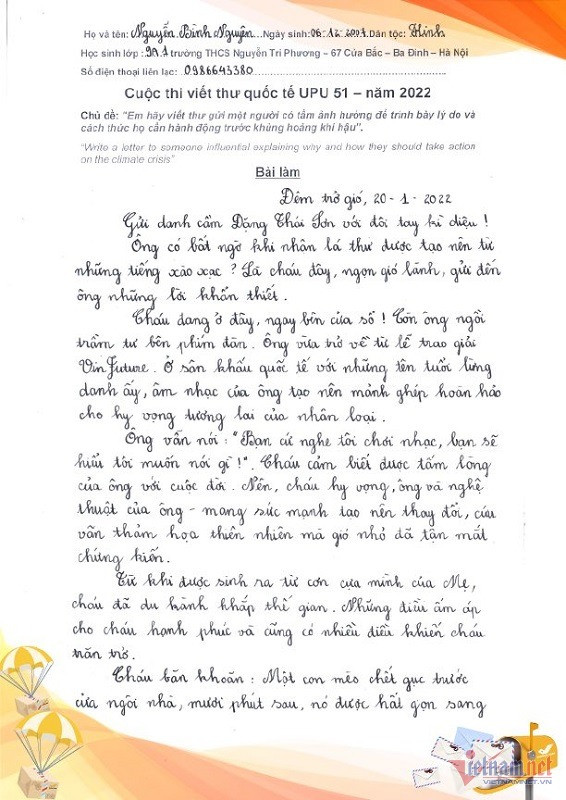 Họ và tên: Nguyễn Bình Nguyên Ngày sinh: 06.12.2007 Dân tộc: Kinh
Học sinh lớp: 9A1 trường THCS Nguyễn Tri Phương – 67 Cửa Bắc – Ba Đình – Hà Nội
Số điện thoại liên lạc: 0986643380
Cuộc thi viết thư quốc tế UPU 51 – năm 2022
Chủ đề: "Em hãy viết thư gửi một người có tầm ảnh hưởng để trình bày lý do và
cách thức họ cần hành động trước khủng hoảng khí hậu".
"Write a letter to someone influential explaining why and how they should take action
on the climate crisis"
Bài làm
Đêm trở gió, 20-1-2022
Gửi danh cầm Đặng Thái Sơn với đôi tay kì diệu!
Ông có bất ngờ khi nhận lá thư được tạo nên từ
những tiếng xào xạc? Là cháu đây, ngọn gió lành, gửi đến
ông những lời khẩn thiết.
Cháu đang ở đây, ngay bên cửa sổ! Còn ông ngồi
trầm tư bên phím đàn. Ông vừa trở về từ lễ trao giải
VinFuture. Ở sân khấu quốc tế với những tên tuổi lừng
danh ấy, âm nhạc của ông tạo nên mảnh ghép hoàn hảo
cho hy vọng tương lai của nhân loại.
Ông vẫn nói: "Bạn cứ nghe tôi chơi nhạc, bạn sẽ
hiểu tôi muốn nói gì!". Cháu cảm biết được tấm lòng
của ông với cuộc đời. Nên, cháu hy vọng, ông và nghệ
thuật của ông - mang sức mạnh tạo nên thay đổi, cứu
vãn thảm họa thiên nhiên mà gió nhỏ đã tận mắt
chứng kiến.
Từ khi được sinh ra từ cơn cựa mình của Mẹ,
cháu đã du hành khắp thế gian. Những điều ấm áp
cho cháu hạnh phúc và cũng có nhiều điều khiến cháu
trăn trở.
Cháu băn khoăn: Một con mèo chết gục trước
cửa ngôi nhà, mười phút sau, nó được hất gọn sang
Vietnam.net
VIETNAMNET.VN